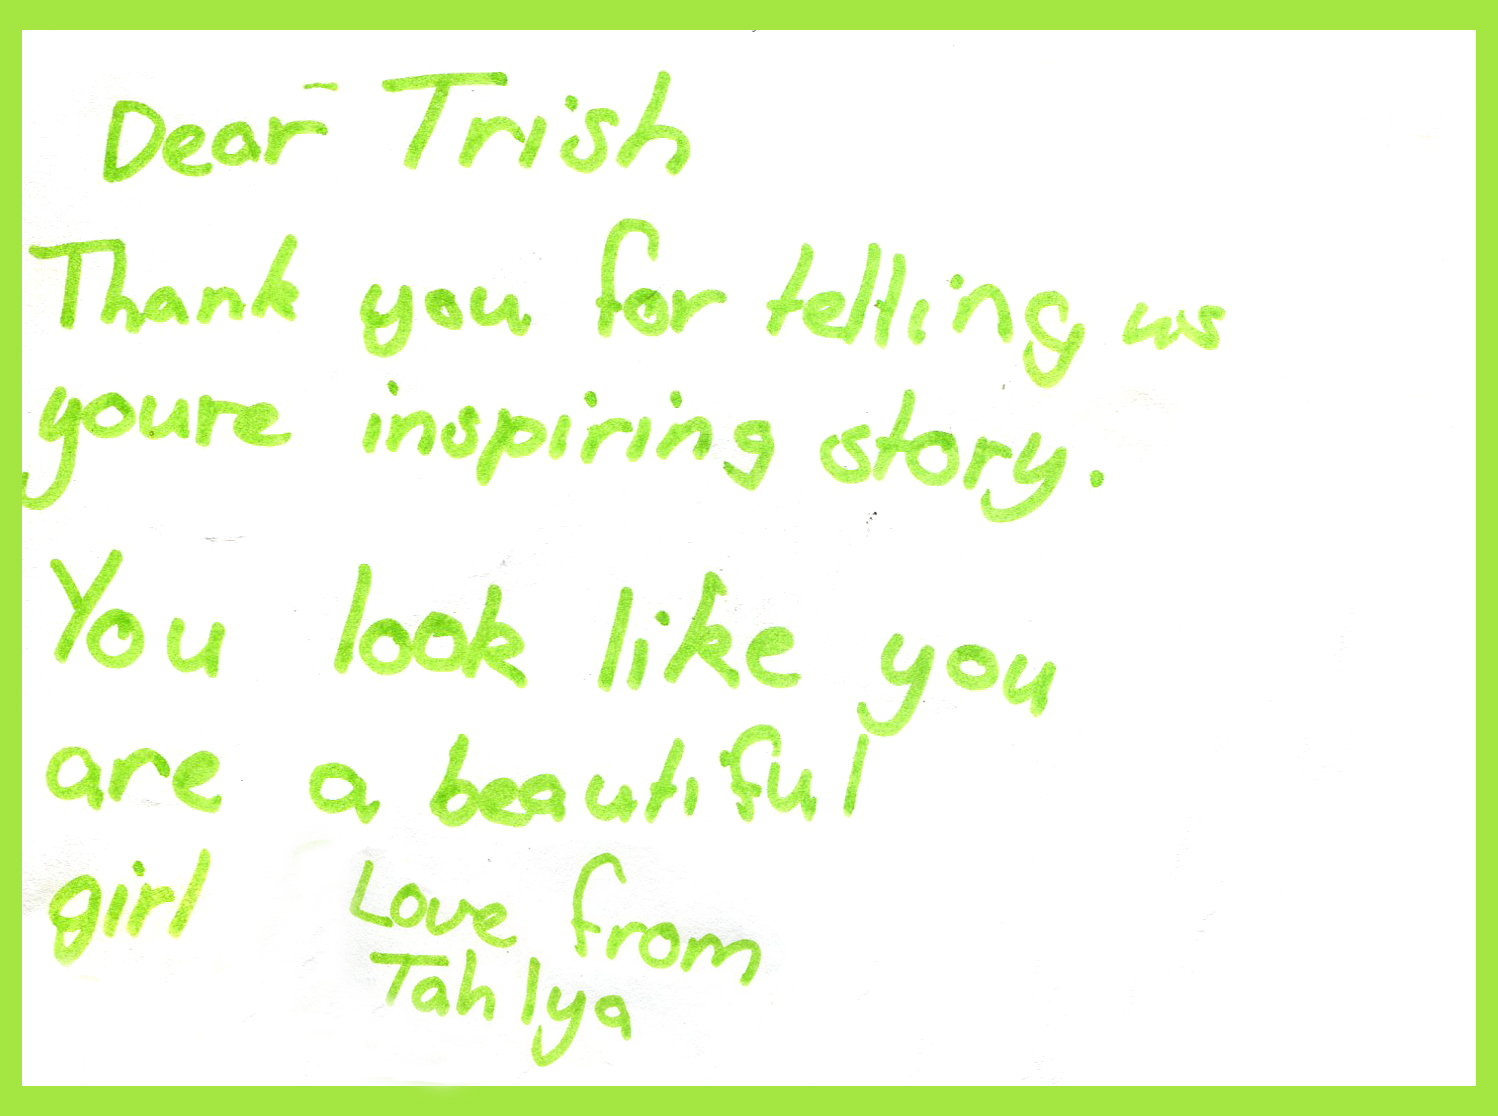 Dear Trish
Thank you for telling us
youre inspiring story.
You look like you
are a beautiful
girl
Love from
Tahlya